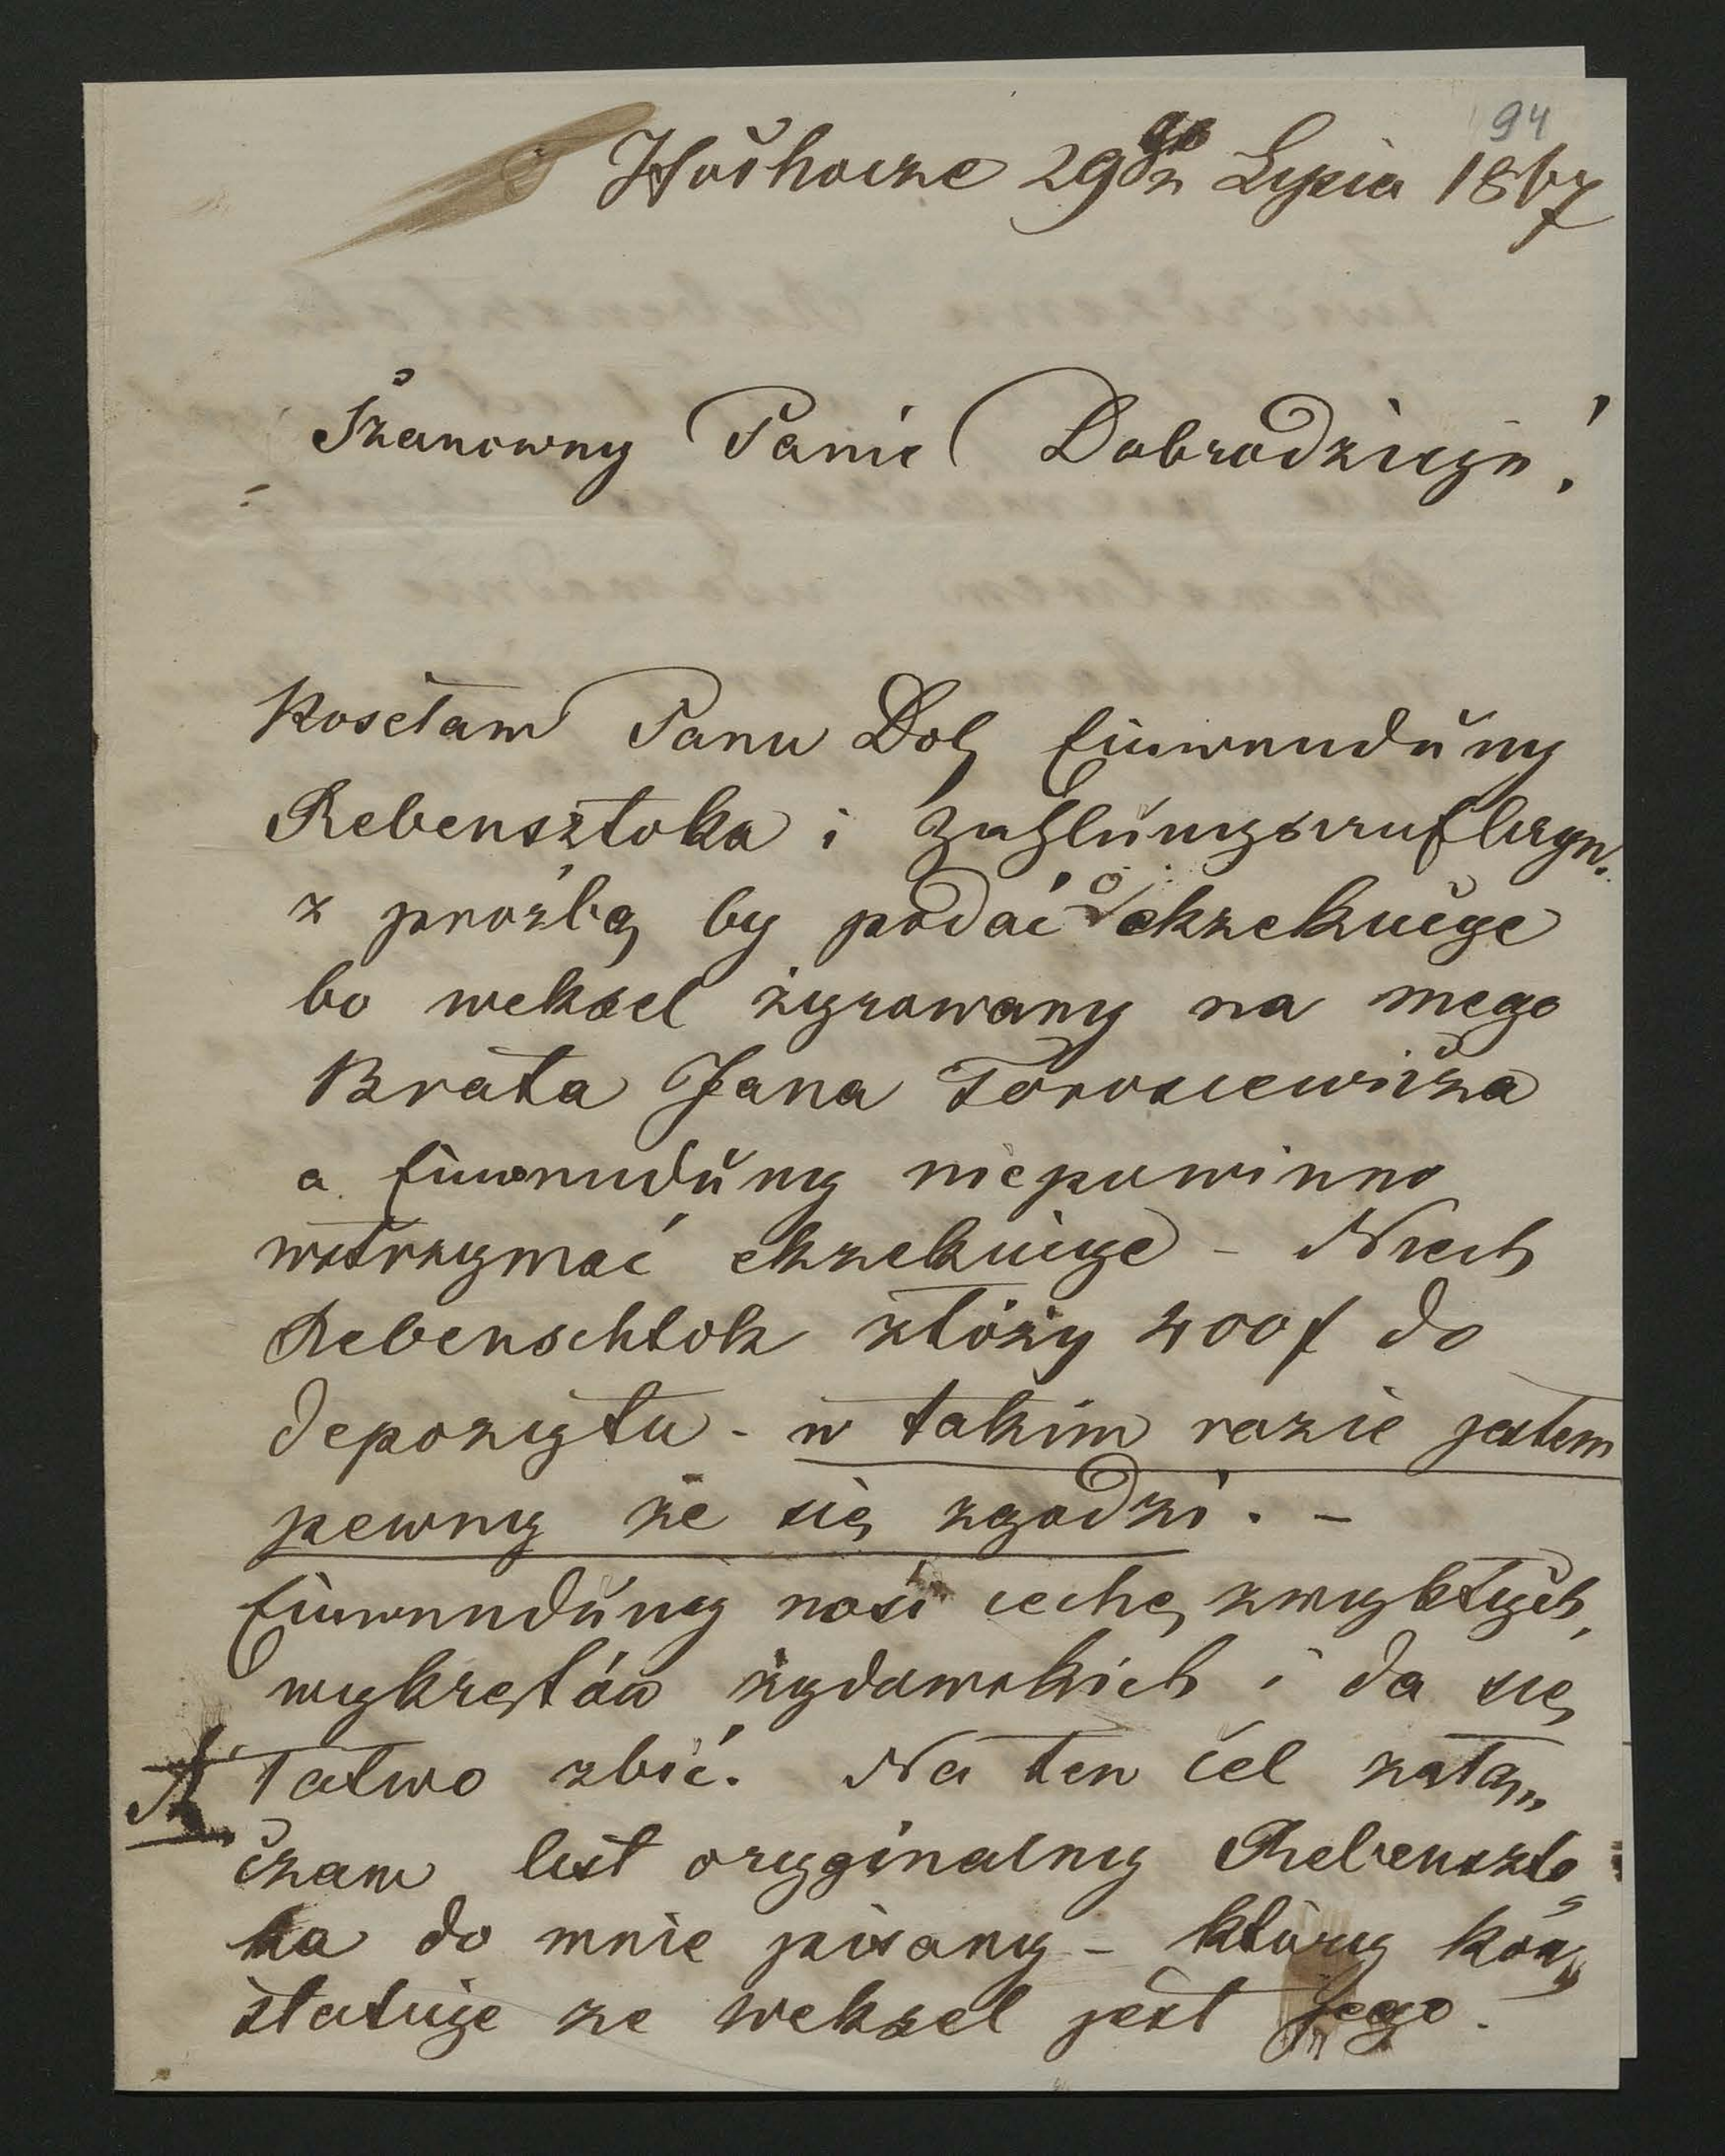 94
29go Lipca 1867
Szanowny Panie Dobrodzieju!
Posełam Panu Dob Einwendung
Rebensztoka i Zahlungsauflage.
z prośbą by podać o ekzekucije
bo weksel żyrowany na mego
Brata Jana Torosiewicza
a Einwendung niepowinno
wstrzymać ekzekucije - Niech
Rebenschtok złóży 400f do
depozytu - w takim razie jestem
pewny że się zgodzi. -
Einwendung nosi cechę zwykłych
wykrętów żydowskich i da się
A łatwo zbić. Na ten cel załą„
czam list oryginalny Rebenszto„
ka do mnie pisany - który kon„
statuje ze weksel jest Jego.